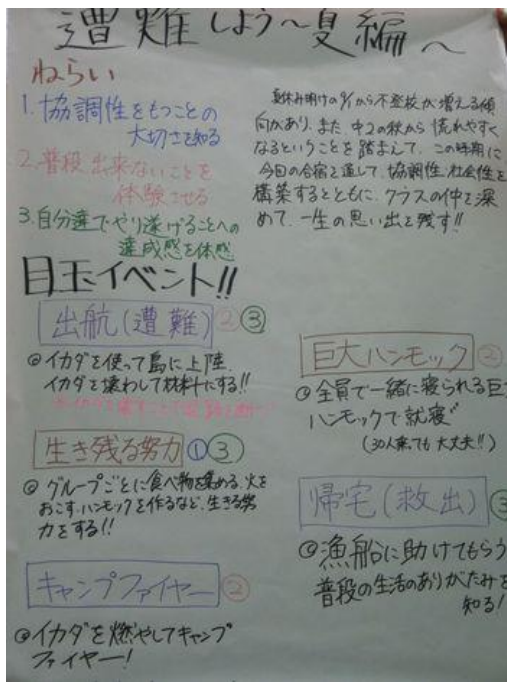 遭難しよう〜夏編〜
ねらい
1.協調性をもつことの
大切さを知る
2.普段出来ないことを
体験させる
3.自分達でやり遂げることへの
達成感を体感
夏休み明けの9/1から不登校が増える傾
向があり、また、中2の秋から荒れやすく
なるということを踏まえて、この時期に
今回の合宿を通して、協調性、社会性を
構築するとともに、クラスの仲を深
めて、一生の思い出を残す!!
目玉イベント!!
出航(遭難)②③
◎イカダを使って島に上陸。
イカダを壊わして材料にする!!
生き残る努力①③
◎グループごとに食べ物を集める、火を
おこす、ハンモックを作るなど、生きる努
力をする!!
キャンプファイヤー②
◎イカダを燃やしてキャンプ
ファイヤー!
巨大ハンモック②
◎全員で一緒に寝られる巨大
ハンモックで就寝
(30人乗っても大丈夫!!)
帰宅(救出)③
◎漁船に助けてもらう
普段の生活のありがたみを
知る!